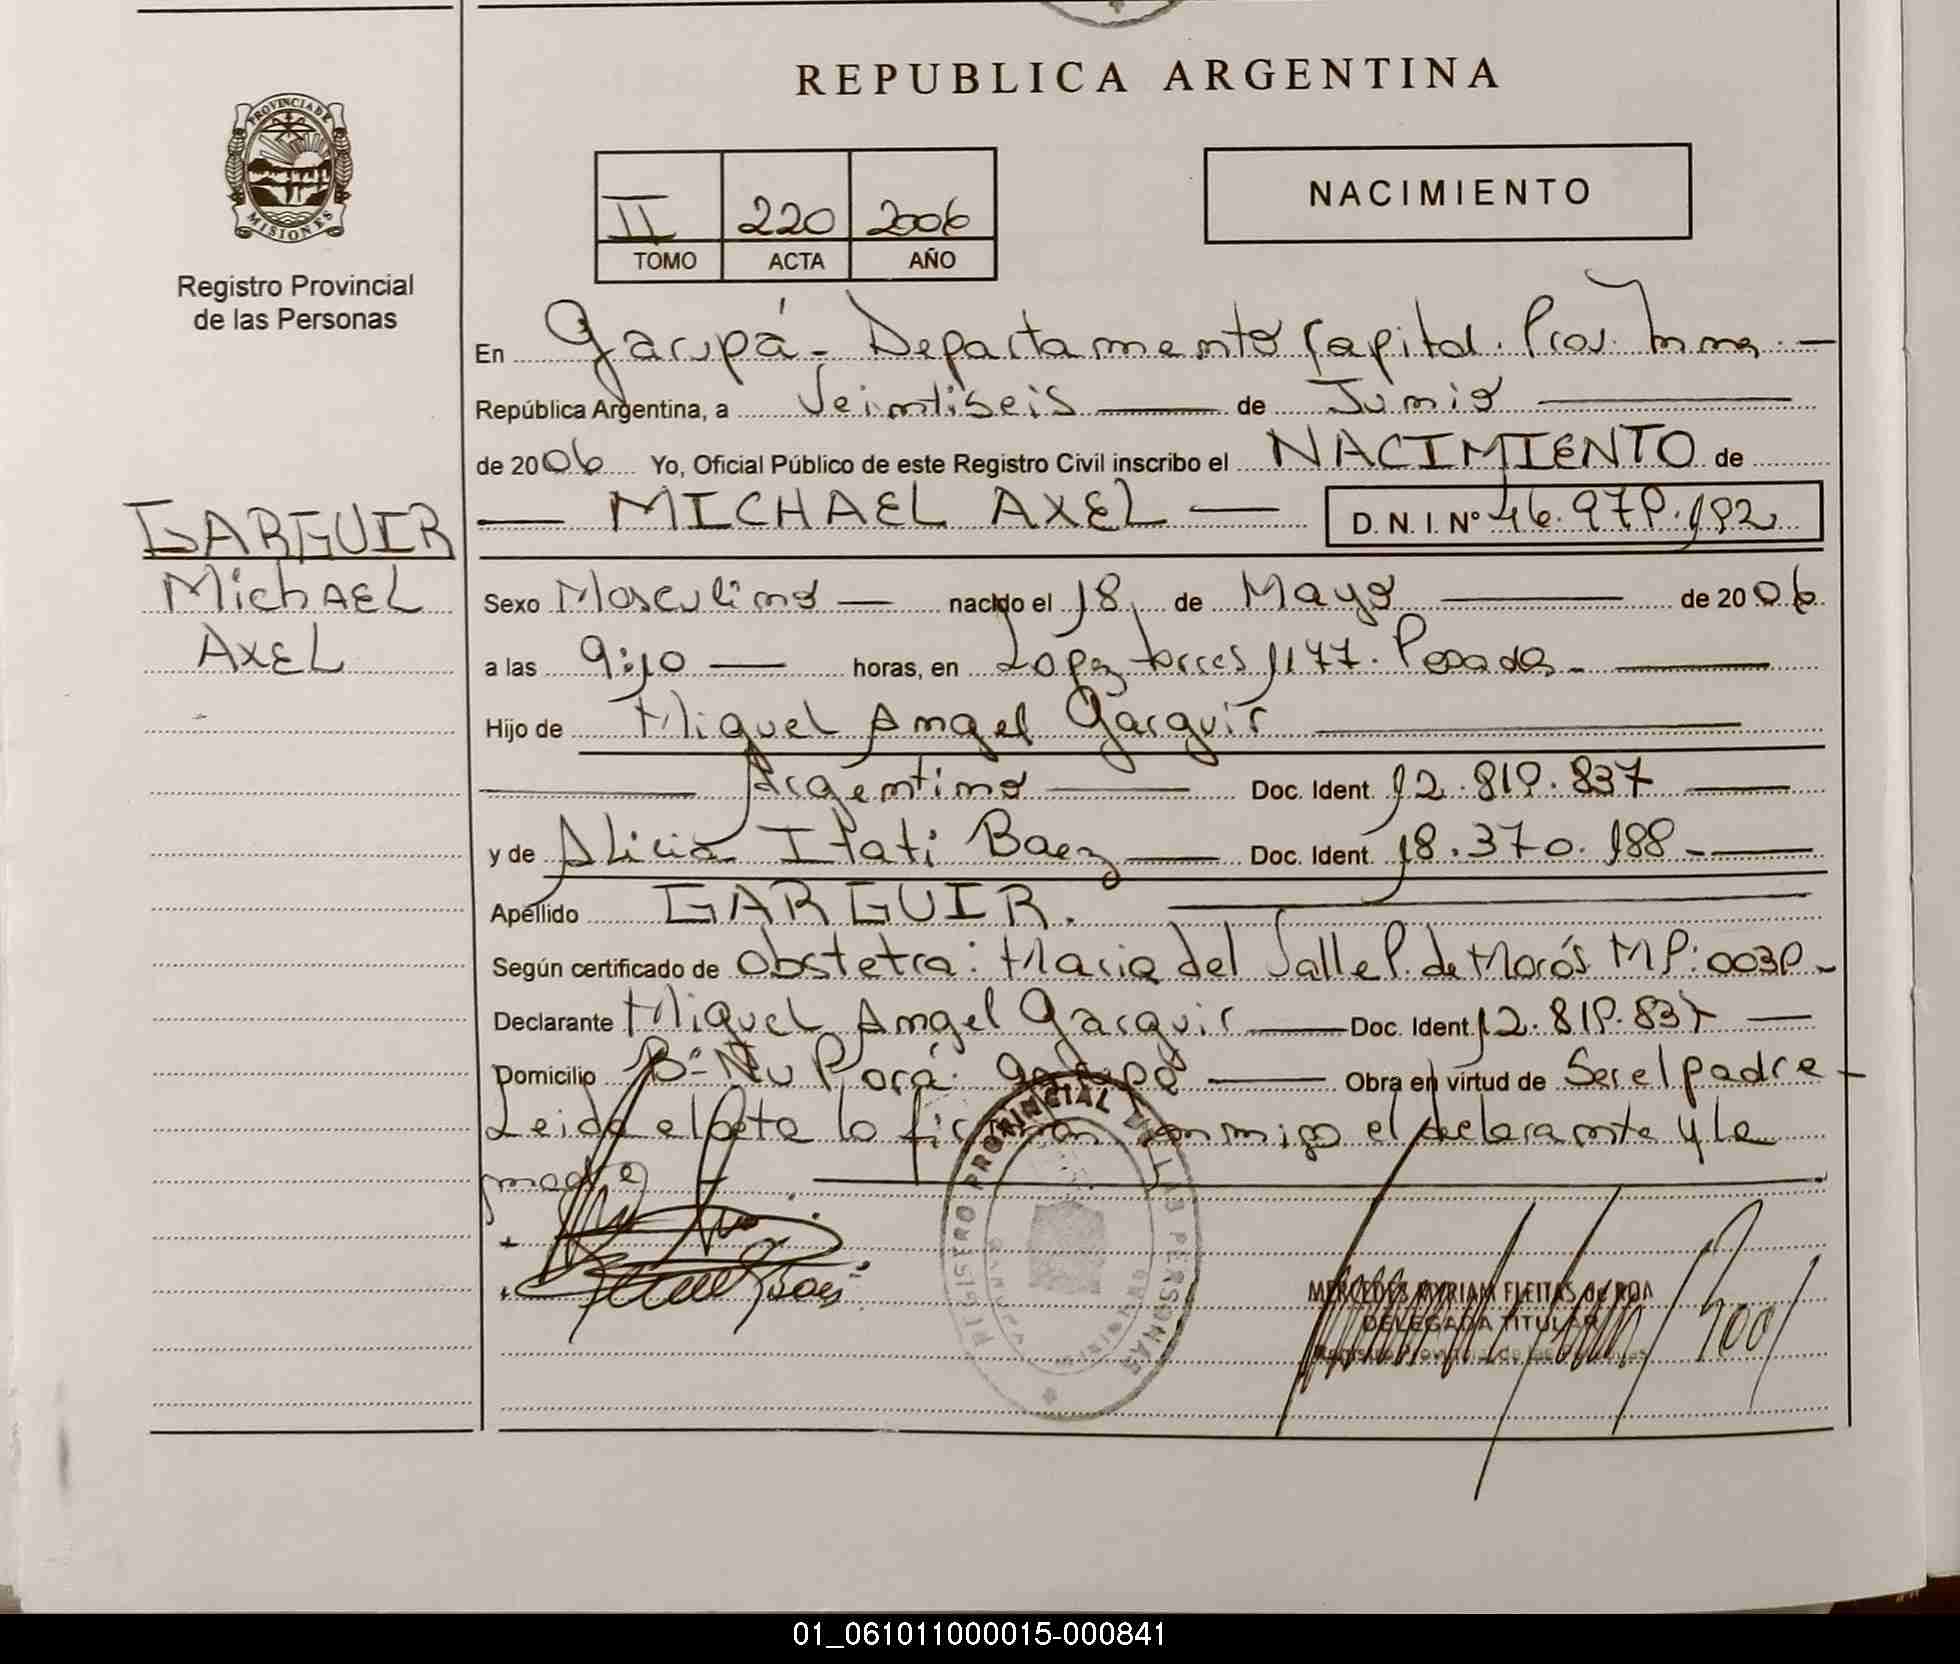 REPUBLICA ARGENTINA
PROVINCIA DE MISIONES
Registro Provincial
de las Personas
II 220 2006
TOMO ACTA AÑO
NACIMIENTO
En Garupá - Departamento Capital. Prov. Mnes. -
República Argentina, a Veintiseis de Junio
de 2006 Yo, Oficial Público de este Registro Civil inscribo el NACIMIENTO de
MICHAEL AXEL D.N.I. Nº 46.979.192
GARGUIR
Michael
Axel
Sexo Masculino nacido el 18 de Mayo de 2006
a las 9:10 horas, en Lopez Torres 1177. Posadas -
Hijo de Miguel Angel Garguir
Argentino Doc. Ident. 12.819.837
y de Alicia Itati Baez Doc. Ident. 18.370.188 -
Apellido GARGUIR.
Según certificado de Obstetra: Maria del Valle P. de Morós MP: 0039 -
Declarante Miguel Angel Garguir Doc. Ident. 12.819.837
Domicilio Bº Ñu Porá. Garupá Obra en virtud de Ser el padre -
Leida el Acta la firman conmigo el declarante y la
madre
REGISTRO PROVINCIAL DE LAS PERSONAS
MERCEDES MYRIAM FLEITAS de ROA
DELEGADA TITULAR
Registro Provincial de las Personas
01_061011000015-000841